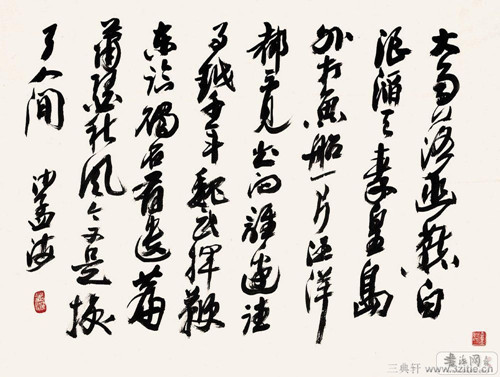 大雨落幽燕白
浪滔天秦皇島
外打魚船一片汪洋
都不見知向誰邊往
事越千年魏武揮鞭
東臨碣石有遺篇
蕭瑟秋風今又是換
了人間
沙孟海
三典轩 www.3zitie.cn